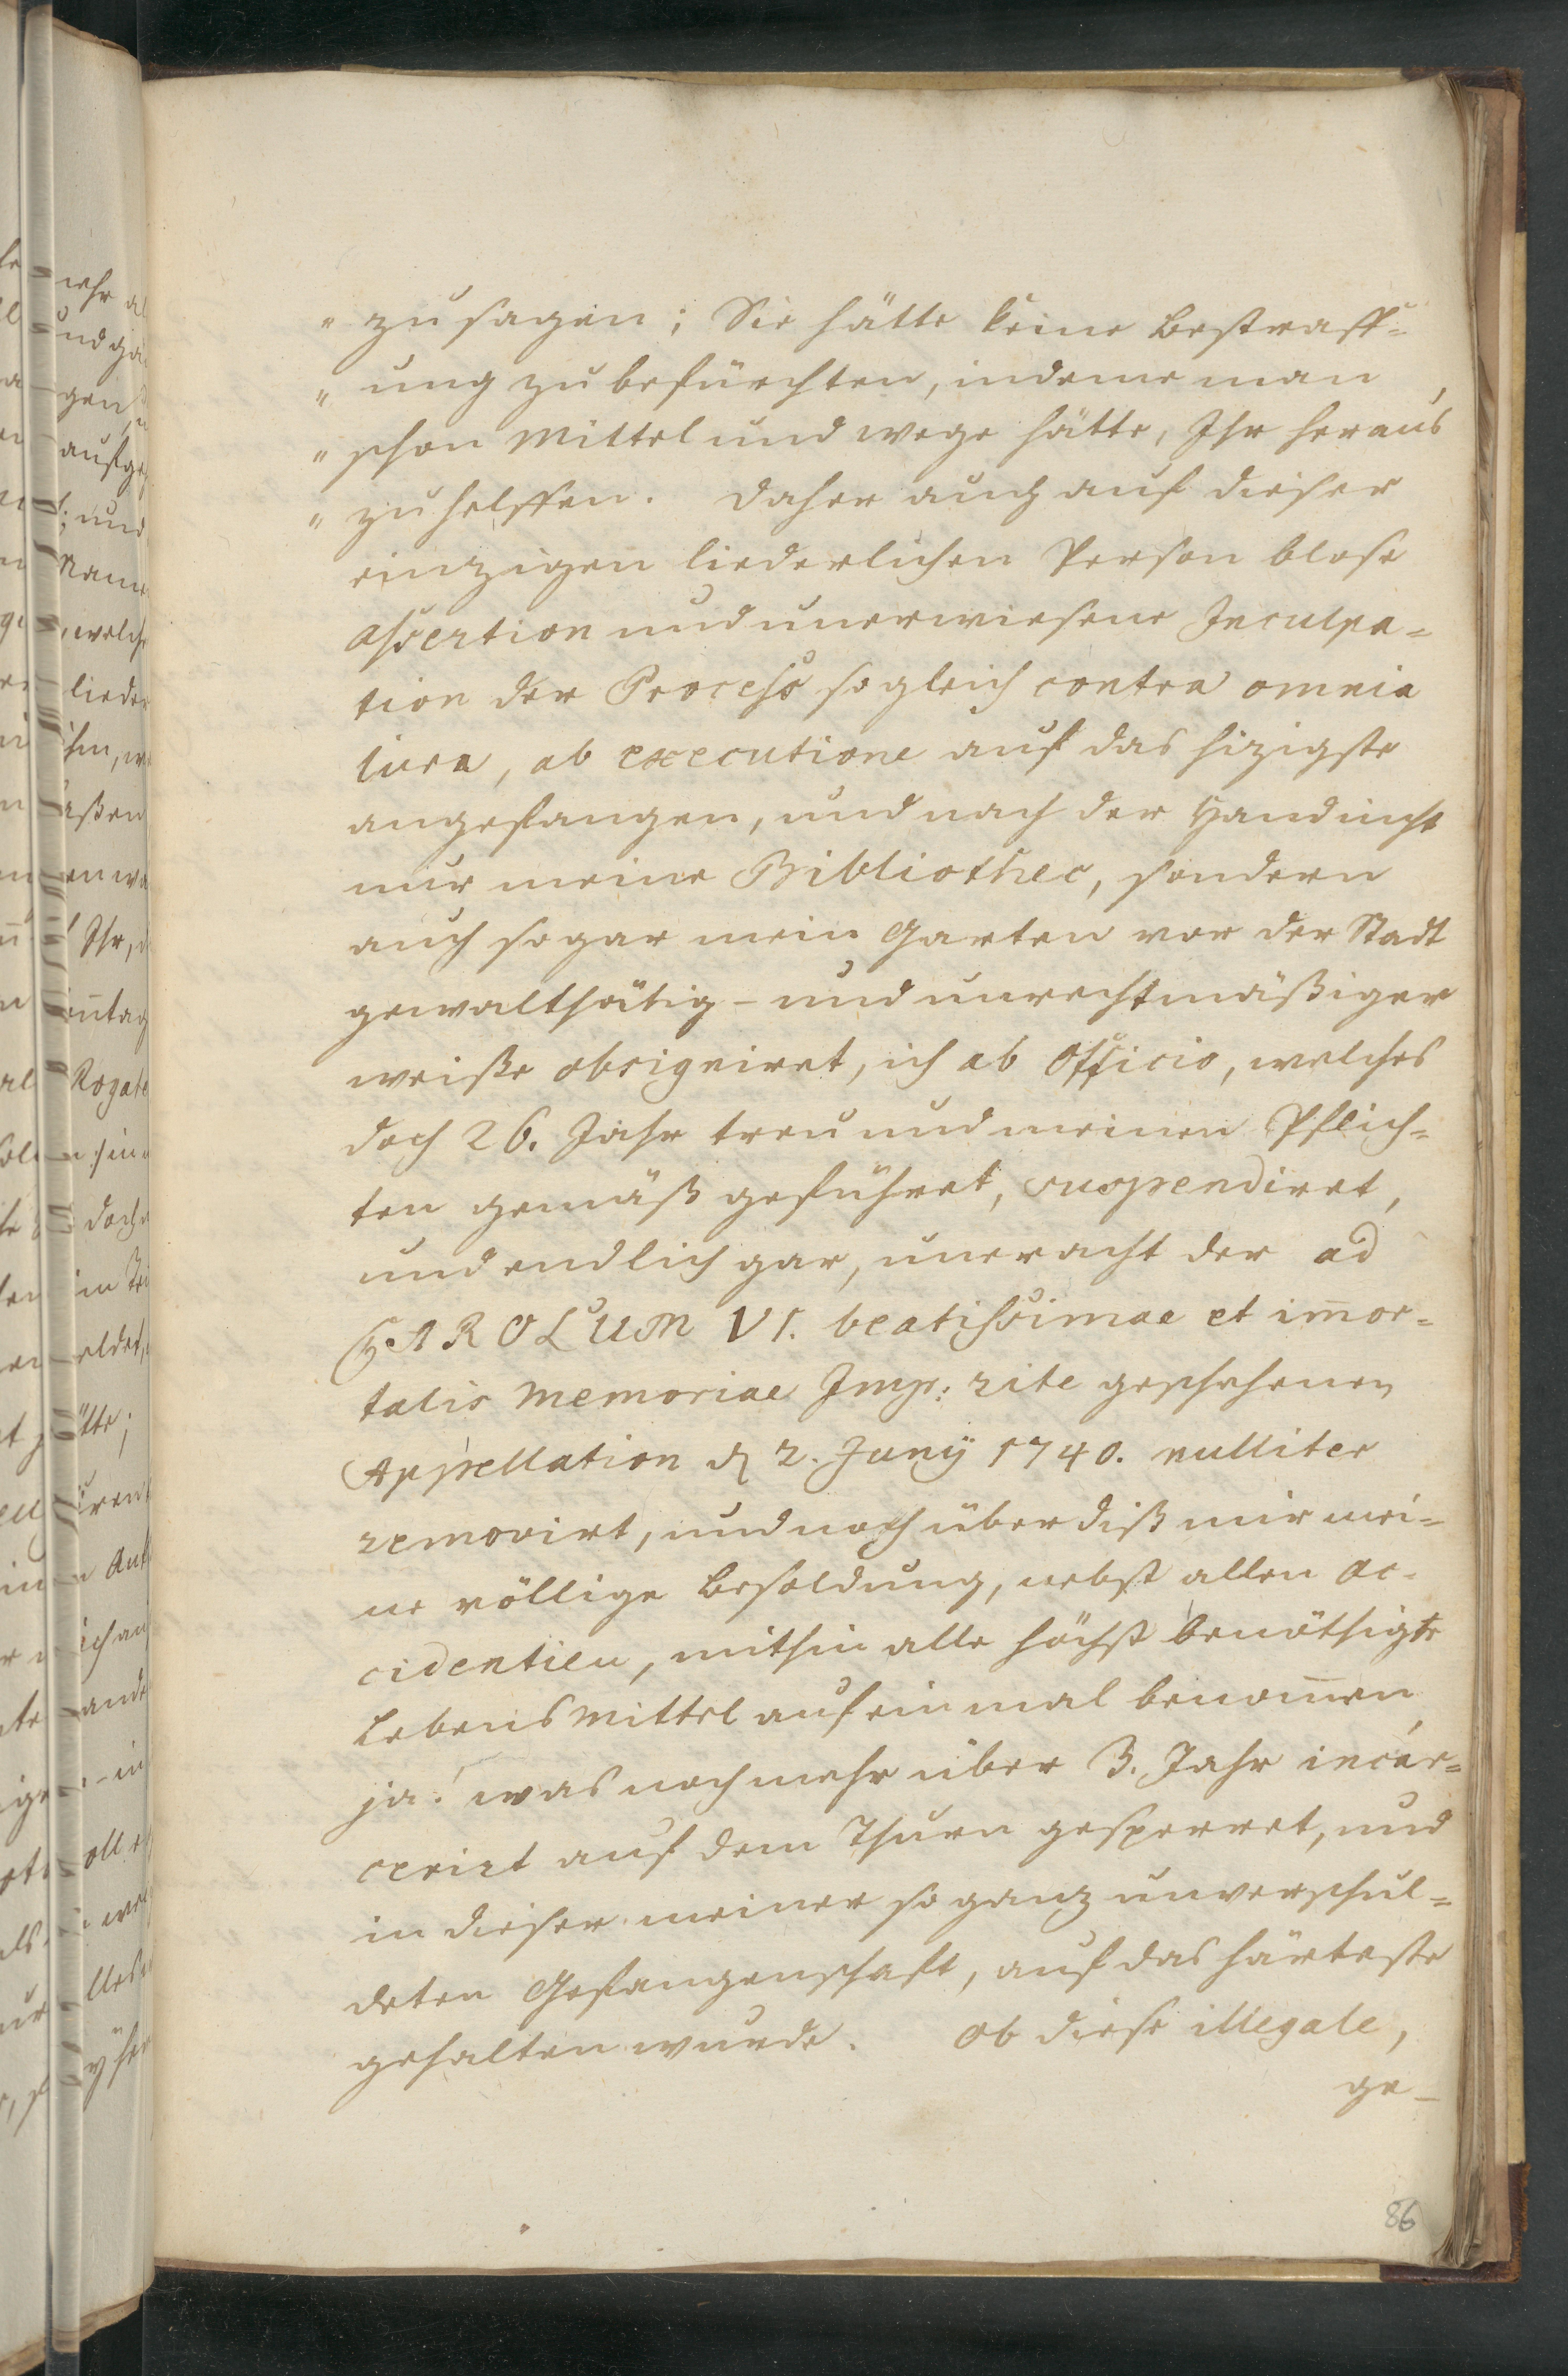 " zu sagen; Sie hätte keine Bestraff=
" ung zu befürchten, indeme man
" schon Mittel und wege hätte, Ihr heraus
" zu helffen. Daher auch auf dieser
einzigen liederlichen Person blose
Assertion und unerwiesene Inculpa=
tion der Process so gleich contra omnia
iura, ab executione auf das hizigste
angefangen, und nach der Hand nicht
nur meine Bibliothec, sondern
auch so gar mein Garten vor der Stadt
gewaltthätig- und unrechtmäßiger
weiße obsigniret, ich ab Officio, welches
doch 26. Jahr treu und meinen Pflich=
ten gemäß geführet, suspendiret,
und endlich gar, uneracht der ad
CAROLUM VI. beatissimae et im̄or=
talis Memoriae Imp: rite geschehenen
Appellation d. 2. Junÿ 1740. nulliter
removirt, und noch über diß mir mei=
ne völlige Besoldung, nebst allen Ac=
cidentien, mithin alle höchst benöthigte
LebensMittel auf ein mal benom̄en,
ja! was noch mehr über 3. Jahr incar=
cerirt auf dem Thurn gesperret, und
in dieser meiner so ganz unverschul=
deten Gefangenschaft, auf das härteste
gehalten wurde. Ob diese illegale,
ge-
86